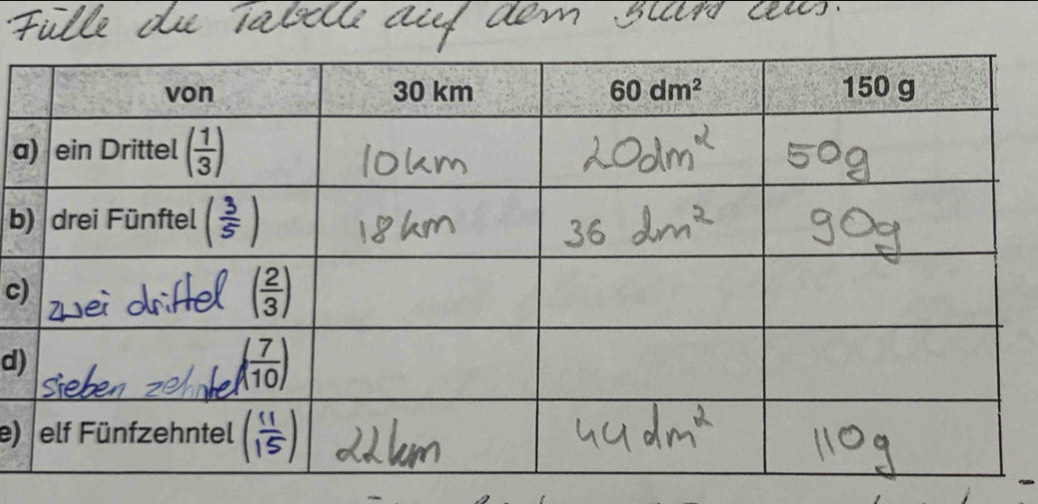 Fülle die Tabelle auf dem Blatt aus.
von 30 km 60 dm² 150 g
a) ein Drittel (1/3) 10km 20dm² 50g
b) drei Fünftel (3/5) 18km 36 dm² 90g
c) zwei drittel (2/3)
d) sieben zehntel (7/10)
e) elf Fünfzehntel (11/15) 22km 44dm² 110g